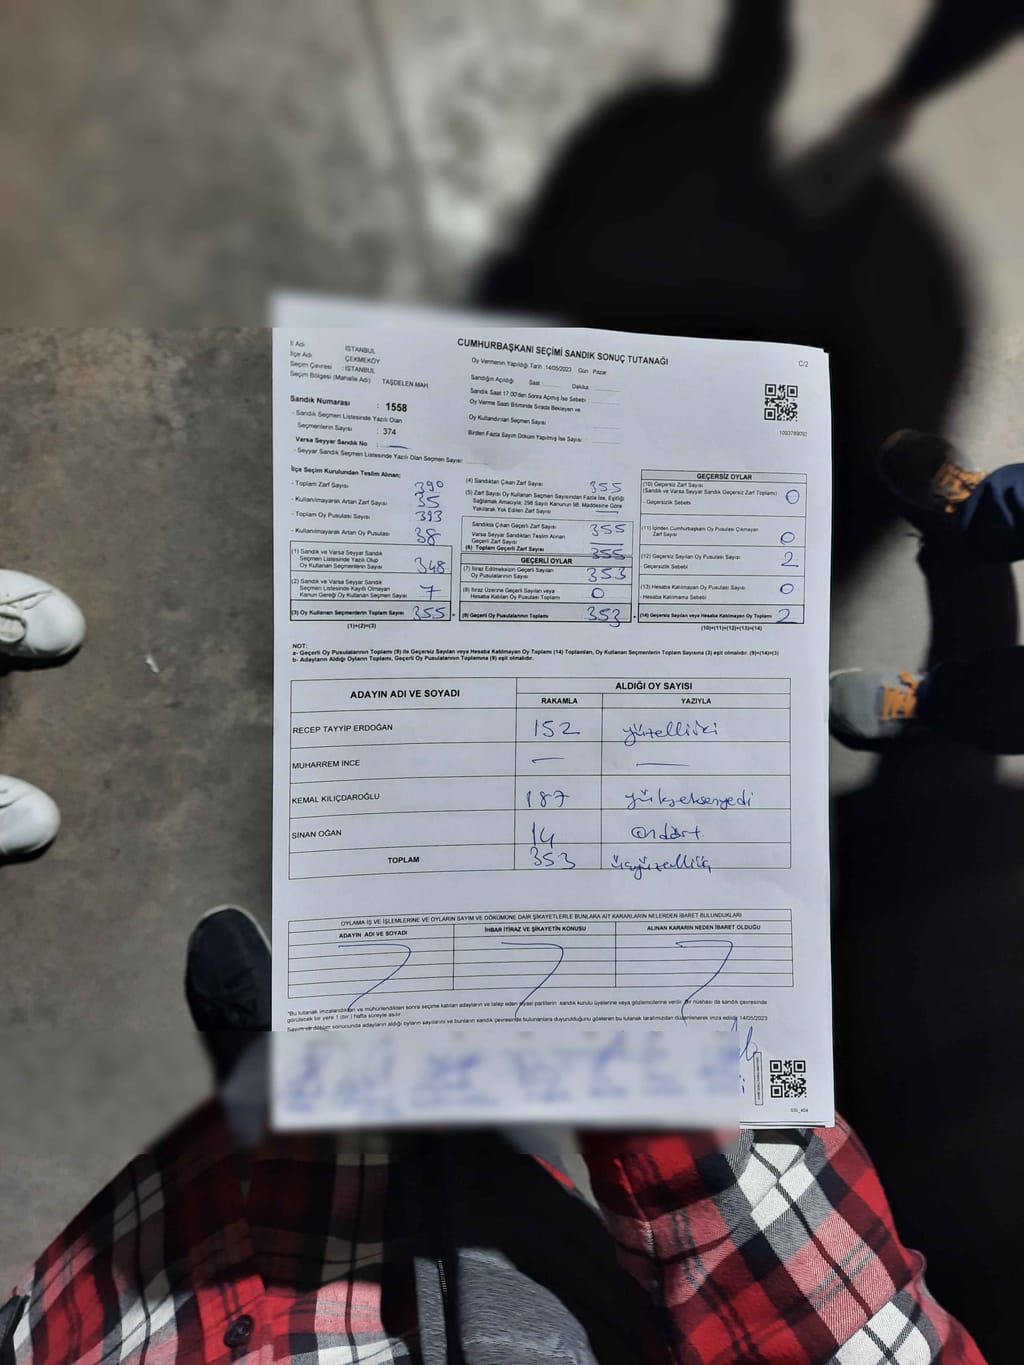 CUMHURBAŞKANI SEÇİMİ SANDIK SONUÇ TUTANAĞI
C/2
İl Adı : İSTANBUL
İlçe Adı : ÇEKMEKÖY
Seçim Çevresi : İSTANBUL
Seçim Bölgesi (Mahalle Adı) : TAŞDELEN MAH
Sandık Numarası : 1558
- Sandık Seçmen Listesinde Yazılı Olan
Seçmenlerin Sayısı : 374
Varsa Seyyar Sandık No :
- Seyyar Sandık Seçmen Listesinde Yazılı Olan Seçmen Sayısı:
Oy Vermenin Yapıldığı Tarih 14/05/2023 Gün Pazar
Sandığın Açıldığı Saat Dakika
Sandık Saat 17.00'den Sonra Açılmış İse Sebebi :
Oy Verme Saati Bitiminde Sırada Bekleyen ve
Oy Kullandırılan Seçmen Sayısı
Birden Fazla Sayım Döküm Yapılmış İse Sayısı :
1093789092
İlçe Seçim Kurulundan Teslim Alınan;
- Toplam Zarf Sayısı 390
- Kullanılmayarak Artan Zarf Sayısı 35
- Toplam Oy Pusulası Sayısı 393
- Kullanılmayarak Artan Oy Pusulası 38
(1) Sandık ve Varsa Seyyar Sandık
Seçmen Listesinde Yazılı Olup
Oy Kullanan Seçmenlerin Sayısı 348
(2) Sandık ve Varsa Seyyar Sandık
Seçmen Listesinde Kayıtlı Olmayan
Kanun Gereği Oy Kullanan Seçmen Sayısı 7
(3) Oy Kullanan Seçmenlerin Toplam Sayısı 355 =
(1)+(2)=(3)
(4) Sandıktan Çıkan Zarf Sayısı 355
(5) Zarf Sayısı Oy Kullanan Seçmen Sayısından Fazla İse, Eşitliği
Sağlamak Amacıyla, 298 Sayılı Kanunun 98. Maddesine Göre
Yakılarak Yok Edilen Zarf Sayısı
Sandıkta Çıkan Geçerli Zarf Sayısı 355
Varsa Seyyar Sandıktan Teslim Alınan
Geçerli Zarf Sayısı
(6) Toplam Geçerli Zarf Sayısı 355
GEÇERLİ OYLAR
(7) İtiraz Edilmeksizin Geçerli Sayılan
Oy Pusulalarının Sayısı 353
(8) İtiraz Üzerine Geçerli Sayılan veya
Hesaba Katılan Oy Pusulası Toplamı 0
(9) Geçerli Oy Pusulalarının Toplamı 353 +
GEÇERSİZ OYLAR
(10) Geçersiz Zarf Sayısı
(Sandık ve Varsa Seyyar Sandık Geçersiz Zarf Toplamı) 0
- Geçersizlik Sebebi
(11) İçinden Cumhurbaşkanı Oy Pusulası Çıkmayan
Zarf Sayısı 0
(12) Geçersiz Sayılan Oy Pusulası Sayısı 2
- Geçersizlik Sebebi
(13) Hesaba Katılmayan Oy Pusulası Sayısı 0
- Hesaba Katılmama Sebebi
(14) Geçersiz Sayılan veya Hesaba Katılmayan Oy Toplamı 2
(10)+(11)+(12)+(13)=(14)
NOT:
a- Geçerli Oy Pusulalarının Toplamı (9) ile Geçersiz Sayılan veya Hesaba Katılmayan Oy Toplamı (14) Toplamları, Oy Kullanan Seçmenlerin Toplam Sayısına (3) eşit olmalıdır. (9)+(14)=(3)
b- Adayların Aldığı Oyların Toplamı, Geçerli Oy Pusulalarının Toplamına (9) eşit olmalıdır.
ADAYIN ADI VE SOYADI ALDIĞI OY SAYISI
RAKAMLA YAZIYLA
RECEP TAYYİP ERDOĞAN 152 yüzelliiki
MUHARREM İNCE
KEMAL KILIÇDAROĞLU 187 yükseksenyedi
SİNAN OĞAN 14 ondört.
TOPLAM 353 üçyüzelliüç
OYLAMA İŞ VE İŞLEMLERİNE VE OYLARIN SAYIM VE DÖKÜMÜNE DAİR ŞİKAYETLERLE BUNLARA AİT KARARLARIN NELERDEN İBARET BULUNDUKLARI
ADAYIN ADI VE SOYADI İHBAR İTİRAZ VE ŞİKAYETİN KONUSU ALINAN KARARIN NEDEN İBARET OLDUĞU
*Bu tutanak imzalandıktan ve mühürlendikten sonra seçime katılan adayların ve talep eden siyasi partilerin sandık kurulu üyelerine veya gözlemcilerine verilir. Bir nüshası da sandık çevresinde
görülecek bir yere 1 (bir) hafta süreyle asılır.
Sayım ve döküm sonucunda adayların aldığı oyların sayılarını ve bunların sandık çevresinde bulunanlara duyurulduğunu gösteren bu tutanak tarafımızdan düzenlenerek imza edildi. 14/05/2023